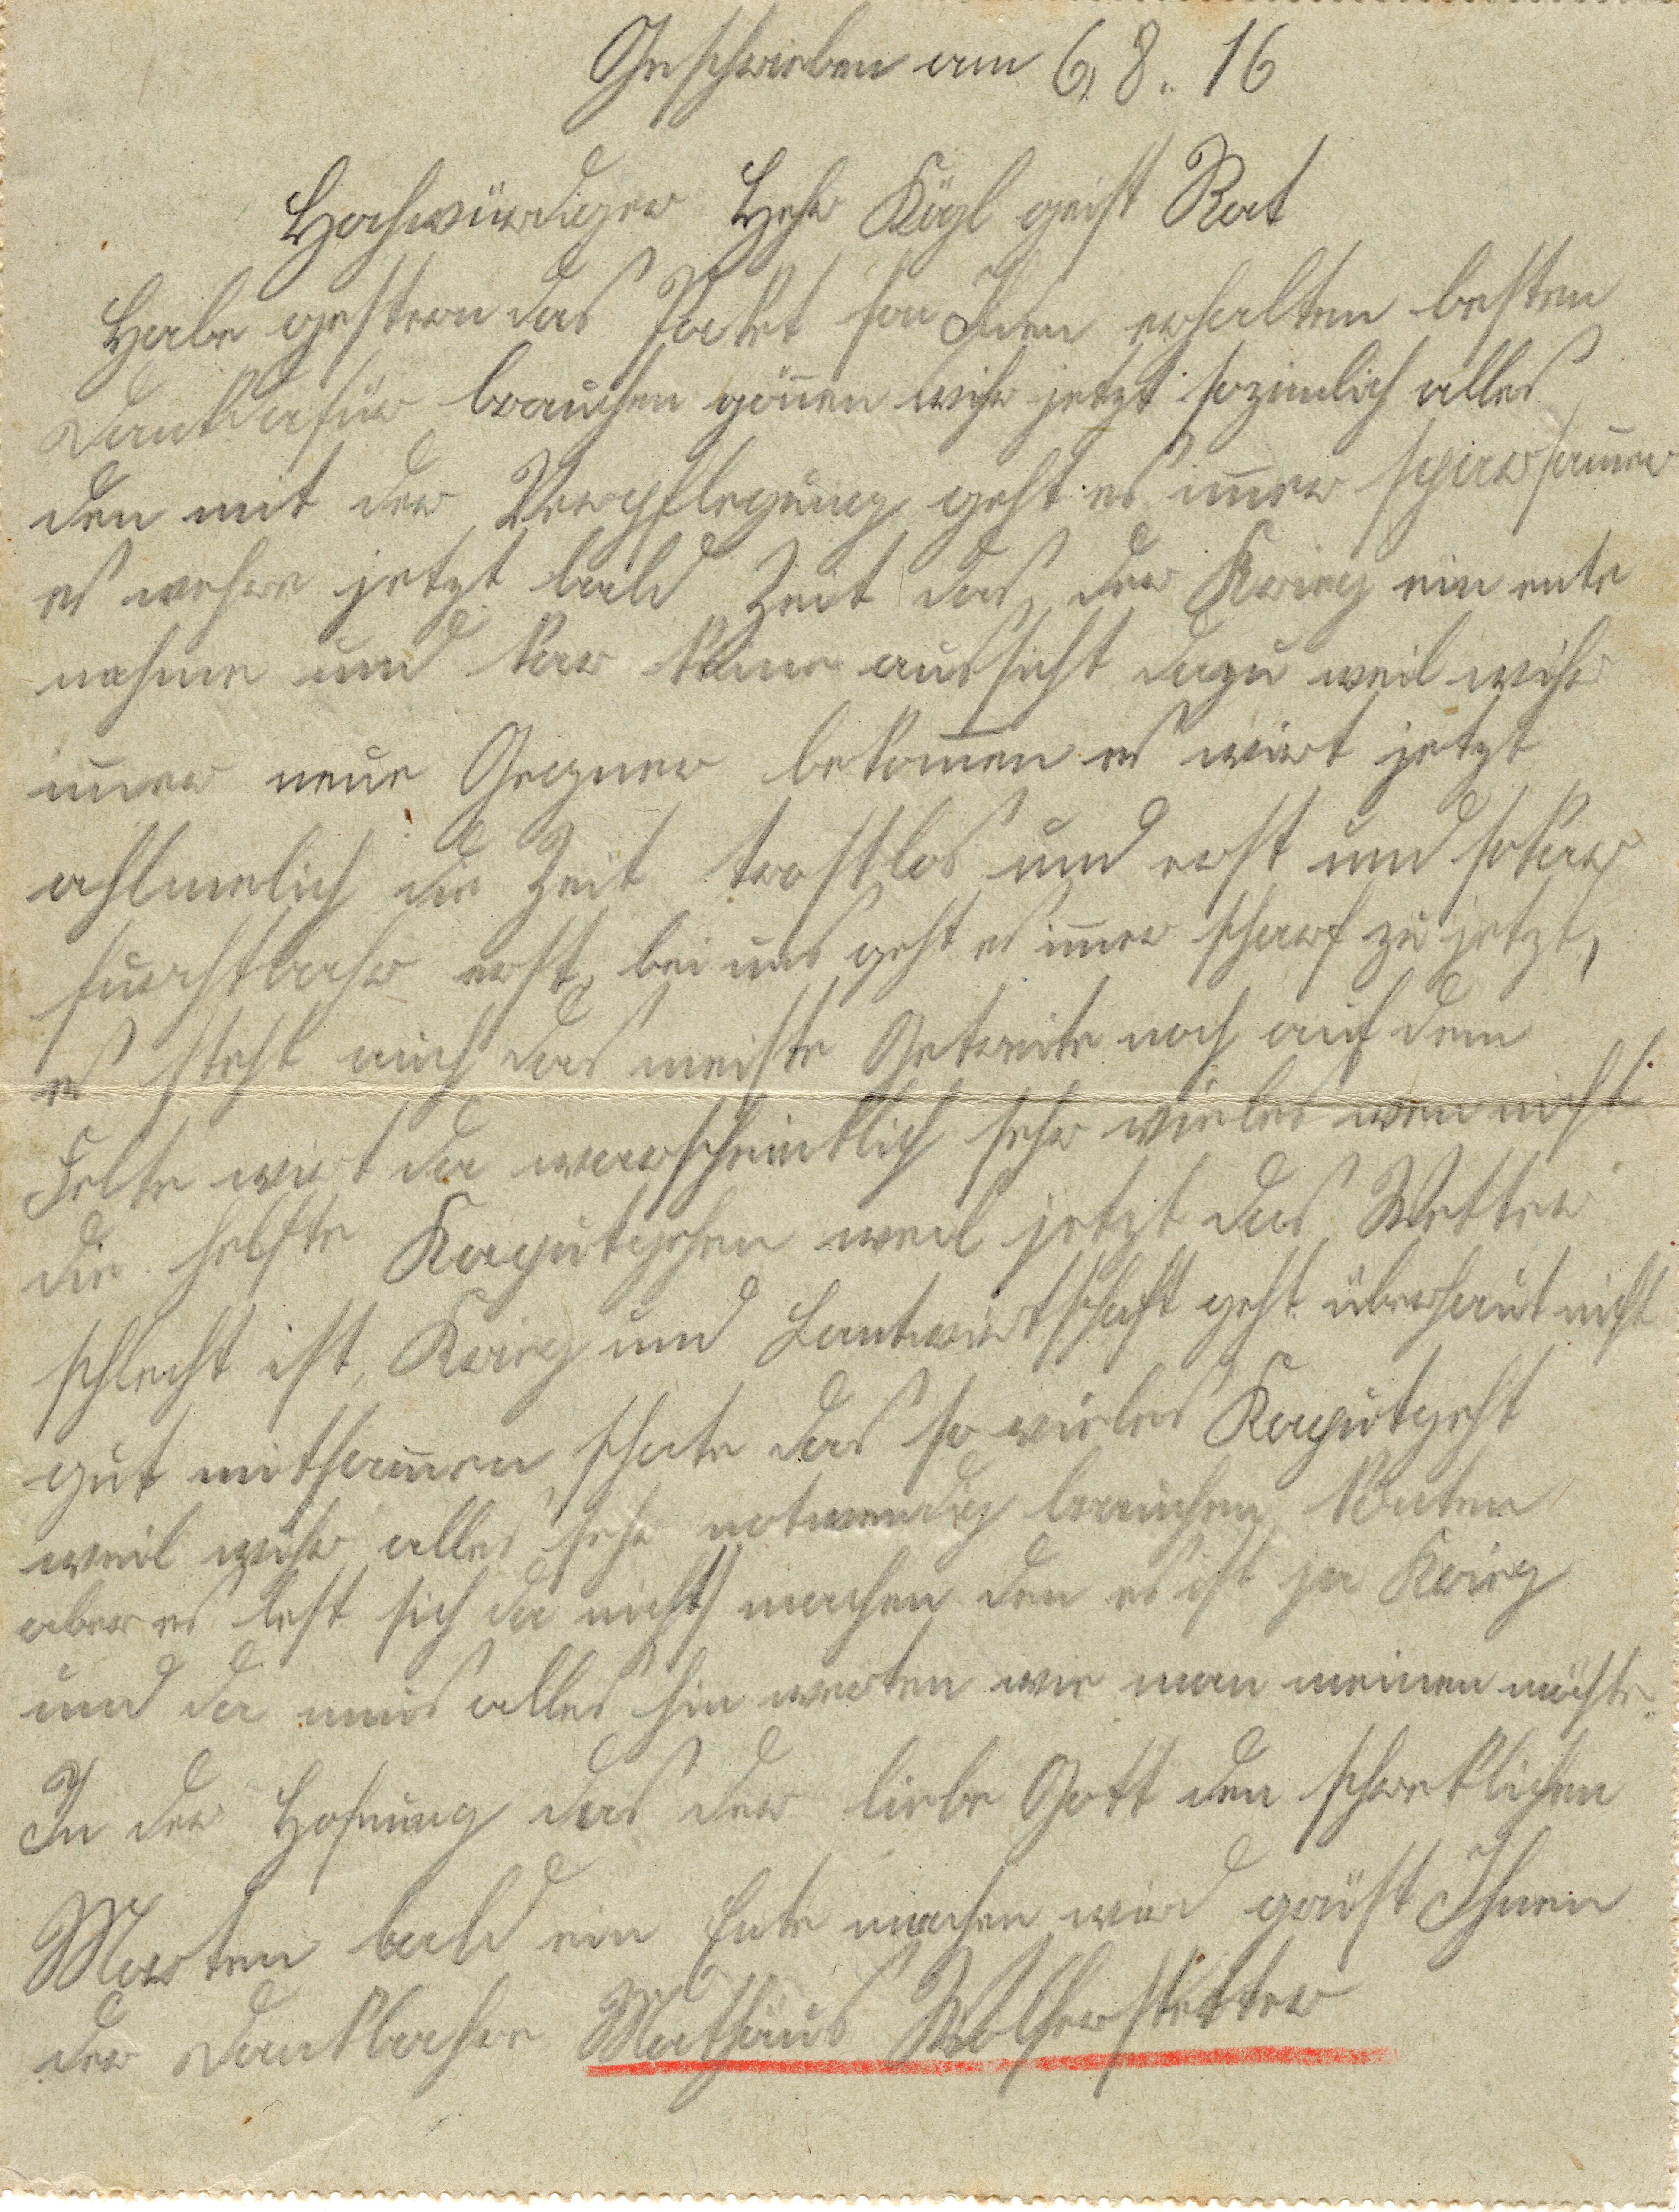 Geschrieben am 6. 8. 16
Hochwürdiger Hehr Kögl geist Rat
Habe gestern das Paket fon Ihen erhalten besten
Dank dafür brauchen gönnen wihr jetzt sozimlich alles
den mit der Verpflegung geht es im̅er sparsam̅er
es wehre jetzt bald Zeit das der Krieg ein ente
nehme und kar keine aussicht dazu weil wihr
im̅er neue Gegner bekom̅en es wirt jetzt
ahlmelich die Zeit trostlos und erst und sokar
furchtbahr erst, bei uns geht es im̅er scharf zu jetzt,
es steht auch das meiste Getreite noch auf dem
Felte wirt da warscheintlich sehr vieles wen nicht
die helfte Kaputgehen weil jetzt das Wetter
schlecht ist, Krieg und Lantwirtschaft geht überhaut nicht
gut mitsam̅en, schate das so vieles Kaputgeht
weil wihr alles sehr notwendig brauchen könten
aber es lest sich da nichts machen den es ist ja Krieg
und da muis alles hin werten wie man meinen möchte.
In der Hofnung das der liebe Gott den schreklichen
Morten bald ein Ente machen wird grüst Ihnen
der Dankbahre Mathäus Wolferstetter